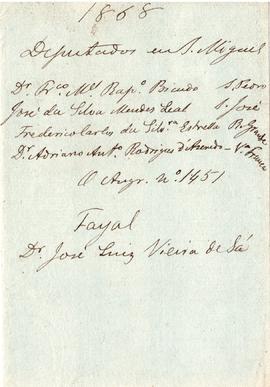 1868
Deputados em S. Miguel
Dr. Frco. Mel. Rapo. Bicudo S. Pedro
José da Silva Mendes Leal S. José
Frederico Carlos da Silvra. Estrella R. Grande
Dr. Adriano Anto. Rodrigues d'Azevedo - Va. Franca
O Angr. no. 1451
Fayal
Dr. José Luiz Vieira de Sá